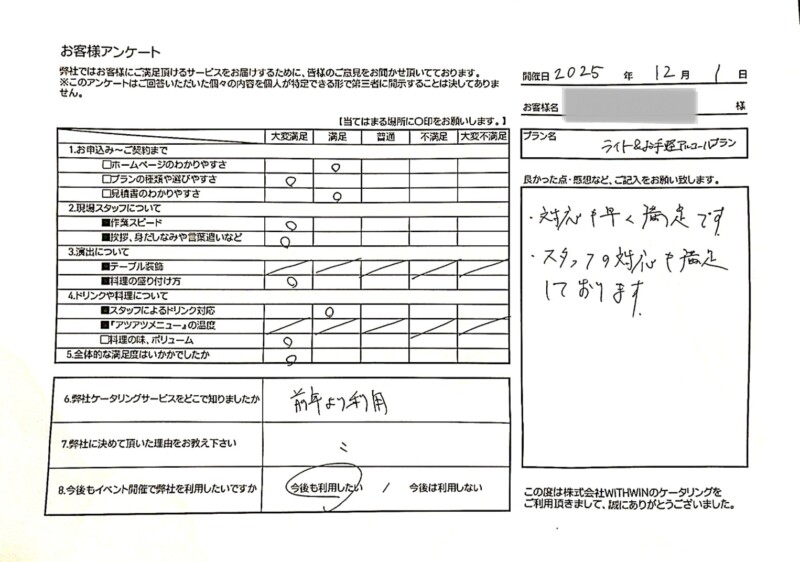 お客様アンケート
弊社ではお客様にご満足頂けるサービスをお届けするために、皆様のご意見をお聞かせ頂いてております。
※このアンケートはご回答いただいた個々の内容を個人が特定できる形で第三者に開示することは決してありません。
開催日 2025 年 12 月 1 日
お客様名 様
【当てはまる場所に〇印をお願いします。】
プラン名
ライト&お手軽アルコールプラン
大変満足 満足 普通 不満足 大変不満足
1.お申込み～ご契約まで
□ホームページのわかりやすさ ○
□プランの種類や選びやすさ ○
□見積書のわかりやすさ ○
2.現場スタッフについて
■作業スピード ○
■挨拶、身だしなみや言葉遣いなど ○
3.演出について
■テーブル装飾
■料理の盛り付け方 ○
4.ドリンクや料理について
■スタッフによるドリンク対応 ○
■『アツアツメニュー』の温度
□料理の味、ボリューム ○
5.全体的な満足度はいかかでしたか ○
良かった点・感想など、ご記入をお願い致します。
・対応も早く満足です
・スタッフの対応も満足
しております
6.弊社ケータリングサービスをどこで知りましたか 前年より利用
7.弊社に決めて頂いた理由をお教え下さい 〃
8.今後もイベント開催で弊社を利用したいですか 今後も利用したい / 今後は利用しない
この度は株式会社WITHWINのケータリングを
ご利用頂きまして、誠にありがとうございました。